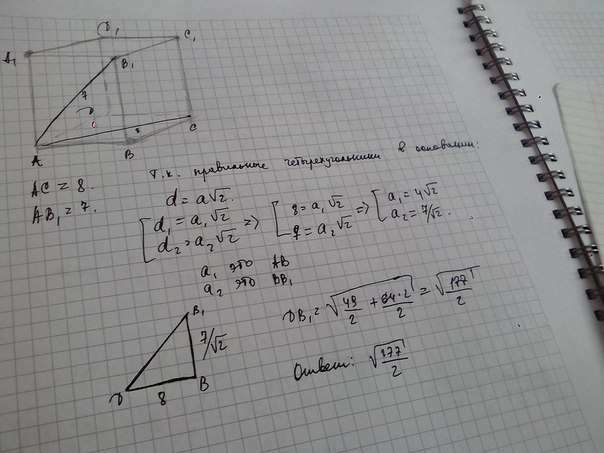 D₁
C₁
A₁
B₁
7
D
C
A
B
AC = 8.
AB₁ = 7.
Т.к. правильные четырехугольники в основании:
d = a√2
[ d₁ = a₁√2 => [ 8 = a₁√2 => [ a₁ = 4√2
d₂ = a₂√2 7 = a₂√2 a₂ = 7/√2.
a₁ это AB
a₂ это BB₁
B₁
7/√2
D 8 B
DB₁ = √(49/2 + 64·2/2) = √(177/2)
Ответ: √(177/2)